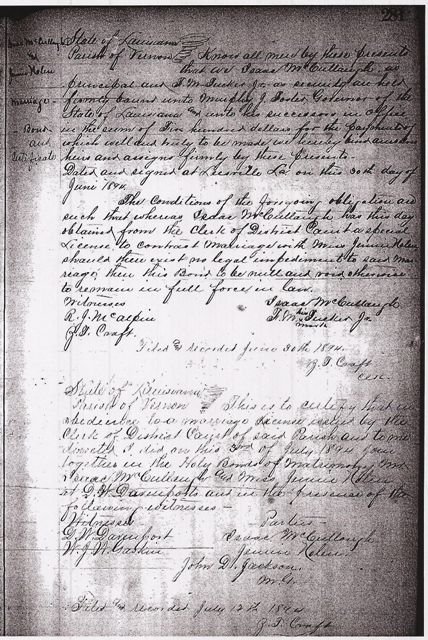 281
Isaac McCullough
&
Jennie Nolen
Marriage
Bond
and
Certificate
State of Louisiana
Parish of Vernon Know all men by these presents
that we Isaac McCullough, as
principal and T. M. Tucker Jr. as security are held
firmly bound unto Murphy J. Foster, Governor of the
State of Louisiana & unto his successors in office
in the sum of Five hundred dollars for the payment of
which well and truly to be made we hereby bind ourselves
heirs and assigns firmly by these presents.
Dated and signed at Leesville La on this 30th day of
June 1894.
The Conditions of the foregoing obligation are
such that whereas Isaac McCullough has this day
obtained from the Clerk of District Court a special
License to contract Marriage with Miss Jennie Nolen
should there exist no legal impediment to said Mar
riage then this Bond to be null and void otherwise
to remain in full force in law.
Witnesses Isaac McCullough
R. J. McAlpin T. M. his Tucker Jr.
mark
J. T. Craft.
Filed & recorded June 30th 1894.
J. T. Craft
State of Louisiana
Parish of Vernon This is to certify that in
obedience to a marriage License issued by the
Clerk of District Court of said Parish and to me
directed I did on this 3rd of July 1894 join
together in the Holy Bonds of Matrimony Mr.
Isaac McCullough and Miss Jennie Nolen
at D. W. Davenports and in the presence of the
following witnesses -
Witnesses Parties
D. W. Davenport Isaac McCullough
W. J. W. Jennie Nolen
John D. Jackson
M.G.
Filed & recorded July 12th 1894
J. T. Craft